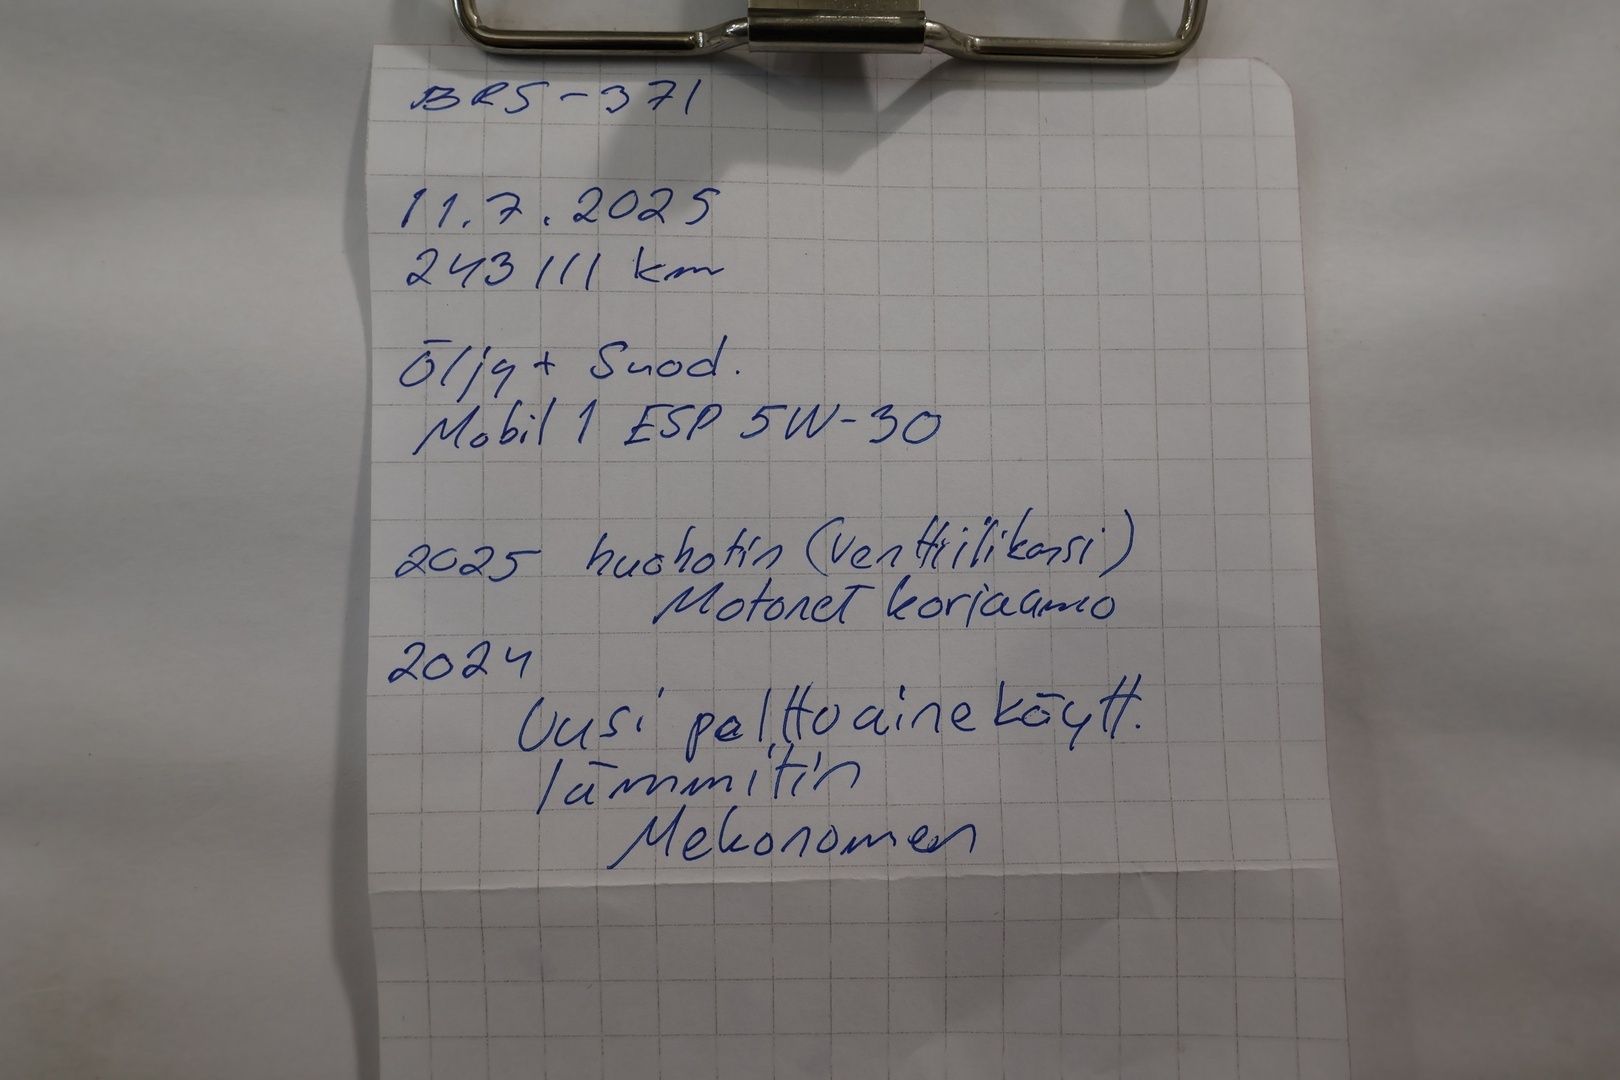 BRS-371
11.7.2025
243111 km
Öljy + Suod.
Mobil 1 ESP 5W-30
2025 huohotin (Venttiilikansi)
Motonet korjaamo
2024
Uusi polttoainekäytt.
lämmitin
Mekonomen